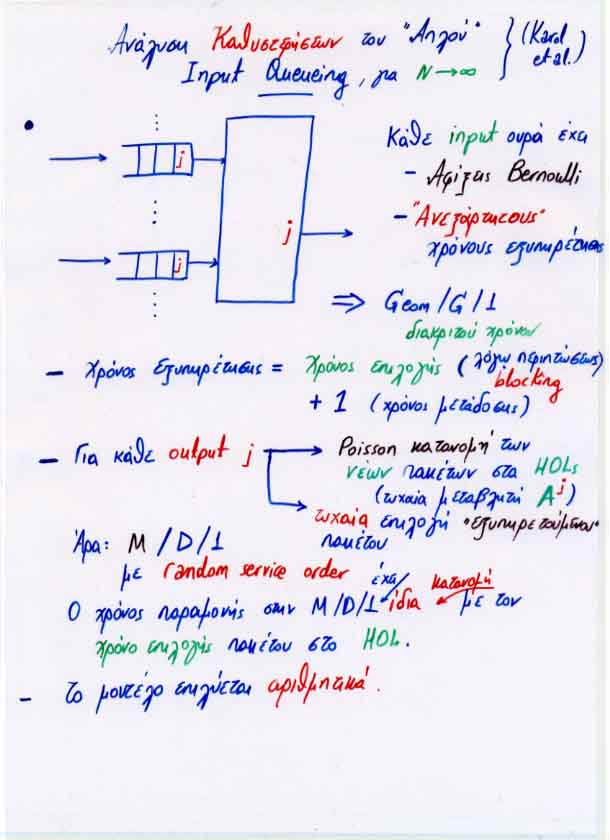 Ανάλυση Καθυστερήσεων του "Απλού" } (Karol
Input Queueing, για N → ∞ et al.)
j
j
j
Κάθε input ουρά έχει
- Αφίξεις Bernoulli
- "Ανεξάρτητους"
χρόνους εξυπηρέτησης
⇒ Geom/G/1
διακριτού χρόνου
- Χρόνος εξυπηρέτησης = Χρόνος επιλογής (λόγω περιπτώσεων
blocking)
+ 1 (χρόνος μετάδοσης)
- Για κάθε output j → Poisson κατανομή των
νέων πακέτων στα HOLs
(τυχαία μεταβλητή A^j)
→ τυχαία επιλογή "εξυπηρετούμενου"
πακέτου
Άρα: M/D/1
με random service order
Ο χρόνος παραμονής στην M/D/1 έχει ίδια κατανομή με τον
χρόνο επιλογής πακέτου στο HOL.
- Το μοντέλο επιλύεται αριθμητικά.